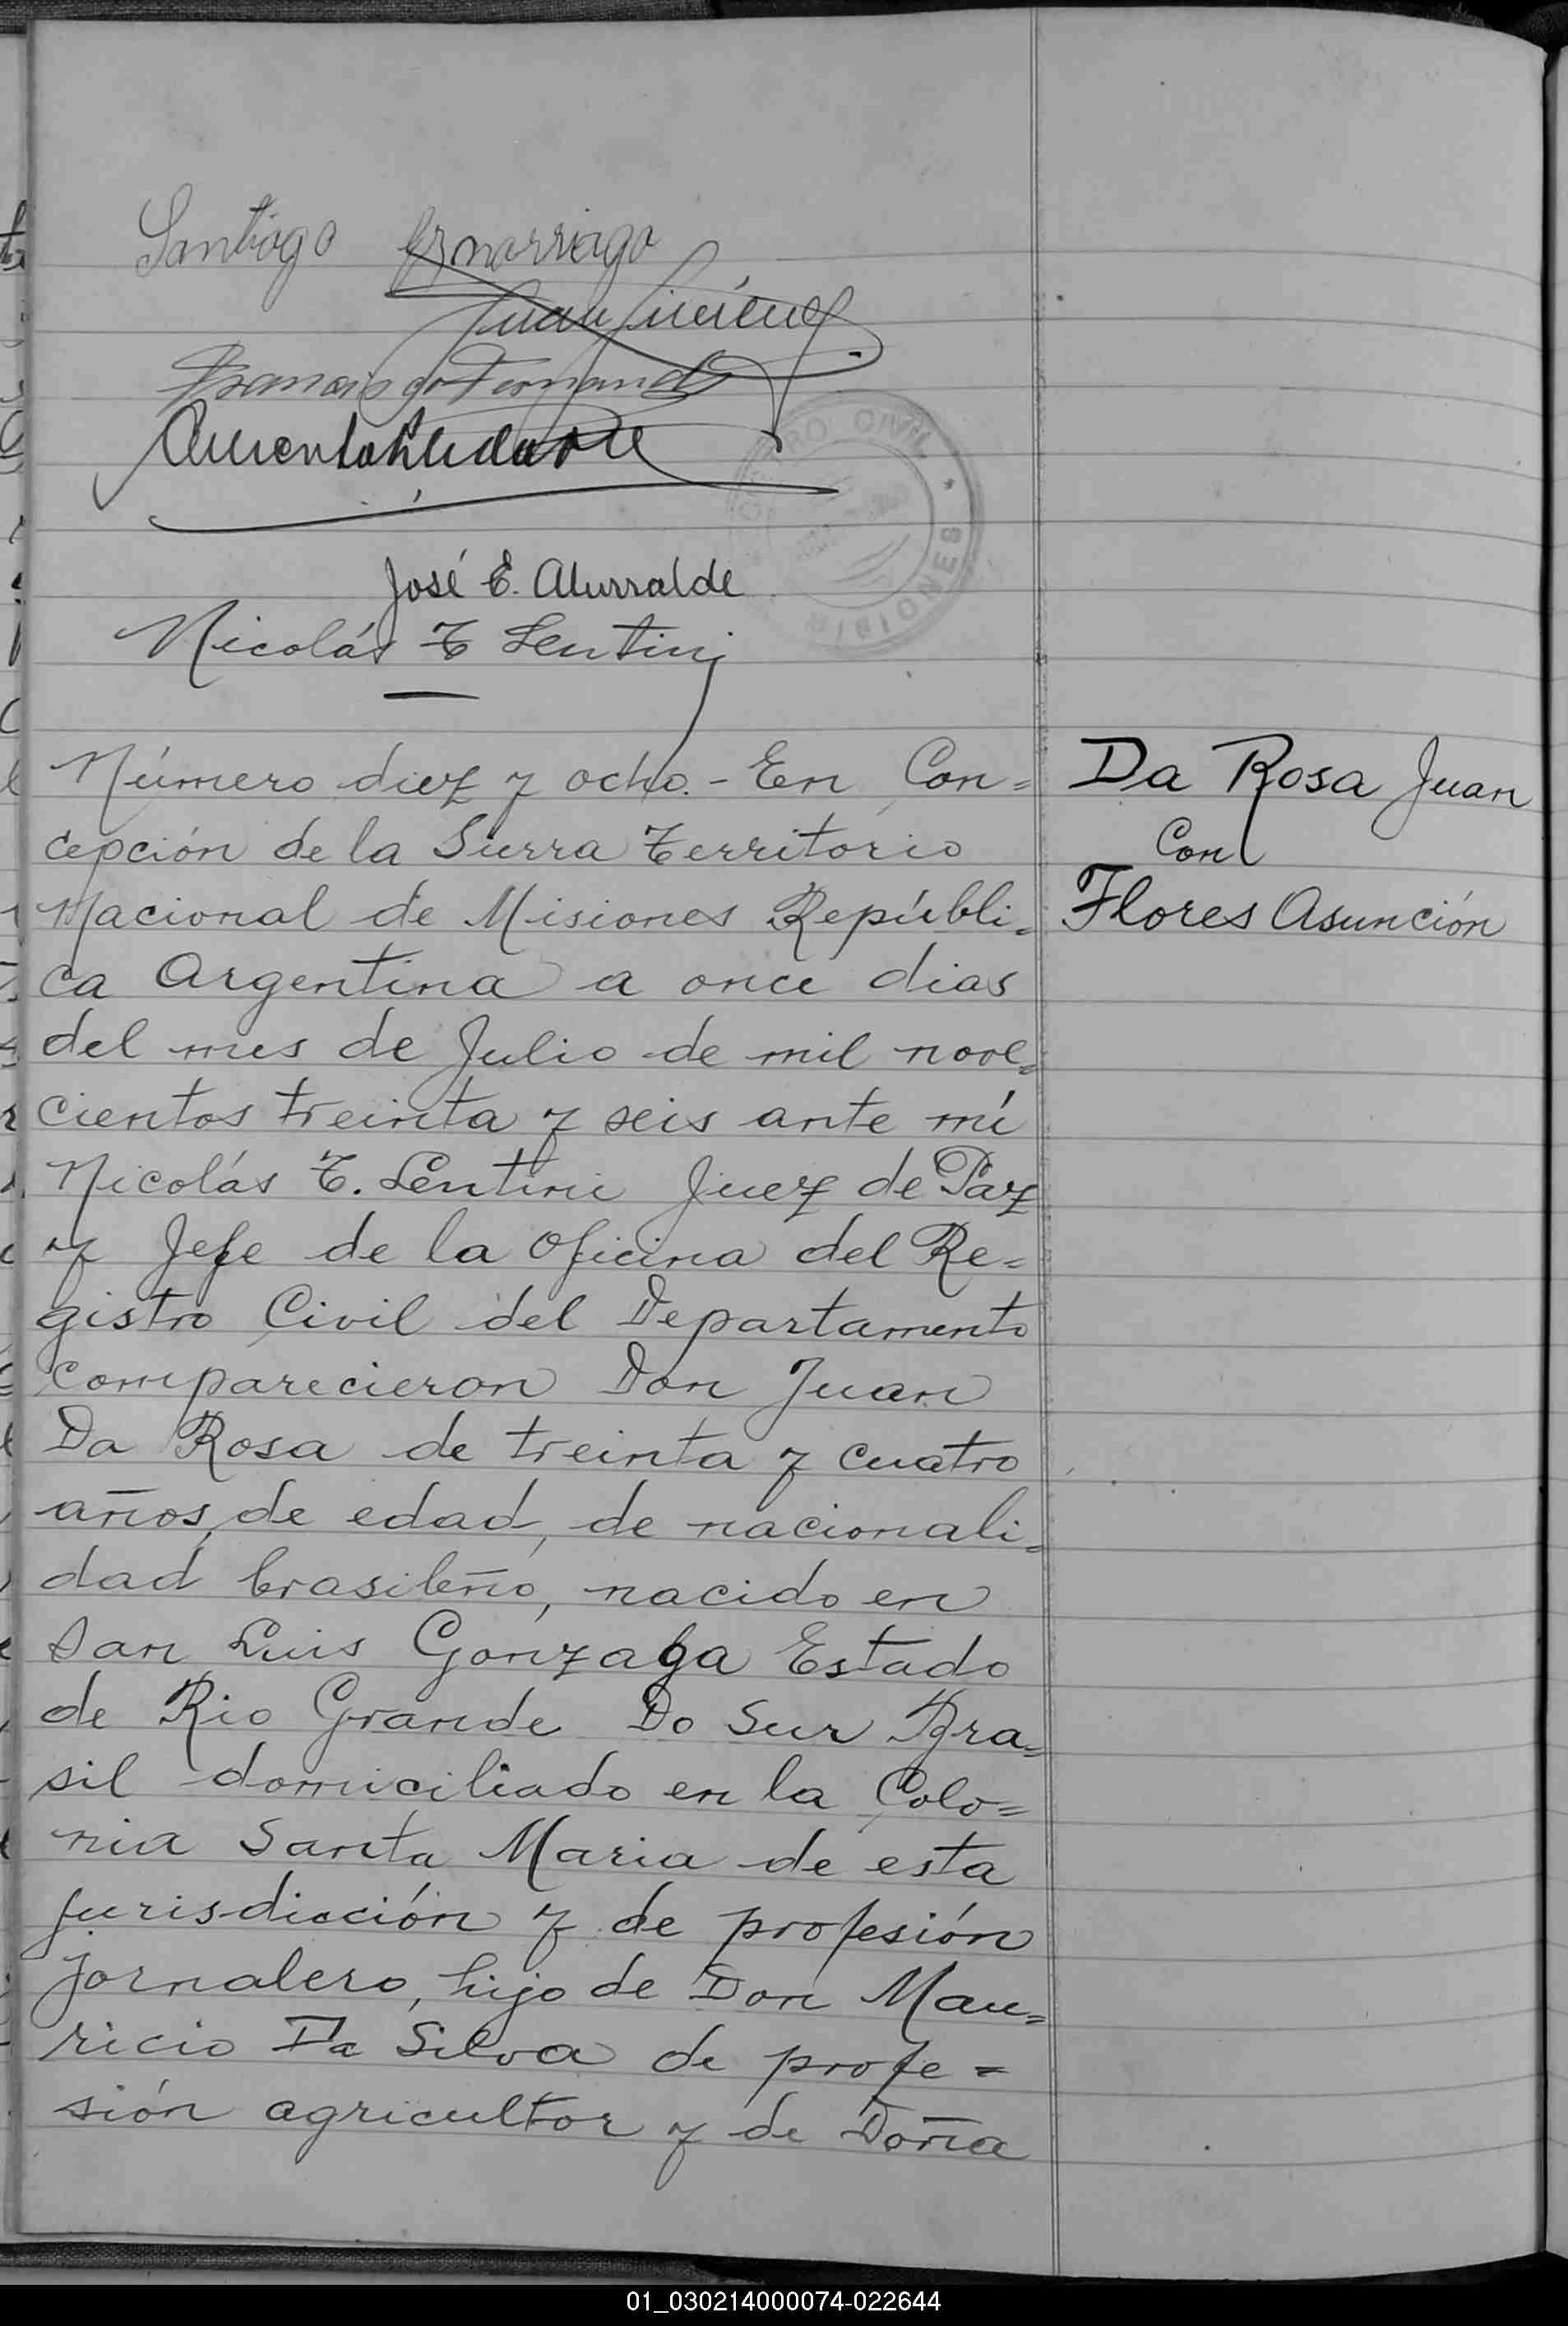 Santiago
Juan Giménez
Francisco Fernandez
José E. Alurralde
Nicolás T Lentini
REGISTRO CIVIL * MISIONES
Número diez y ocho.- En Con=
cepción de la Sierra Territorio
Nacional de Misiones Repúbli=
ca Argentina a once dias
del mes de Julio de mil nove=
cientos treinta y seis ante mí
Nicolás T. Lentini Juez de Paz
y Jefe de la Oficina del Re=
gistro Civil del Departamento
comparecieron Don Juan
Da Rosa de treinta y cuatro
años, de edad, de nacionali=
dad brasileño, nacido en
San Luis Gonzaga Estado
de Rio Grande Do Sur Bra=
sil domiciliado en la Colo=
nia Santa Maria de esta
jurisdicción y de profesión
jornalero, hijo de Don Mau=
ricio Da Silva de profe=
sión agricultor y de Doña
Da Rosa Juan
Con
Flores Asunción
01_030214000074-022644